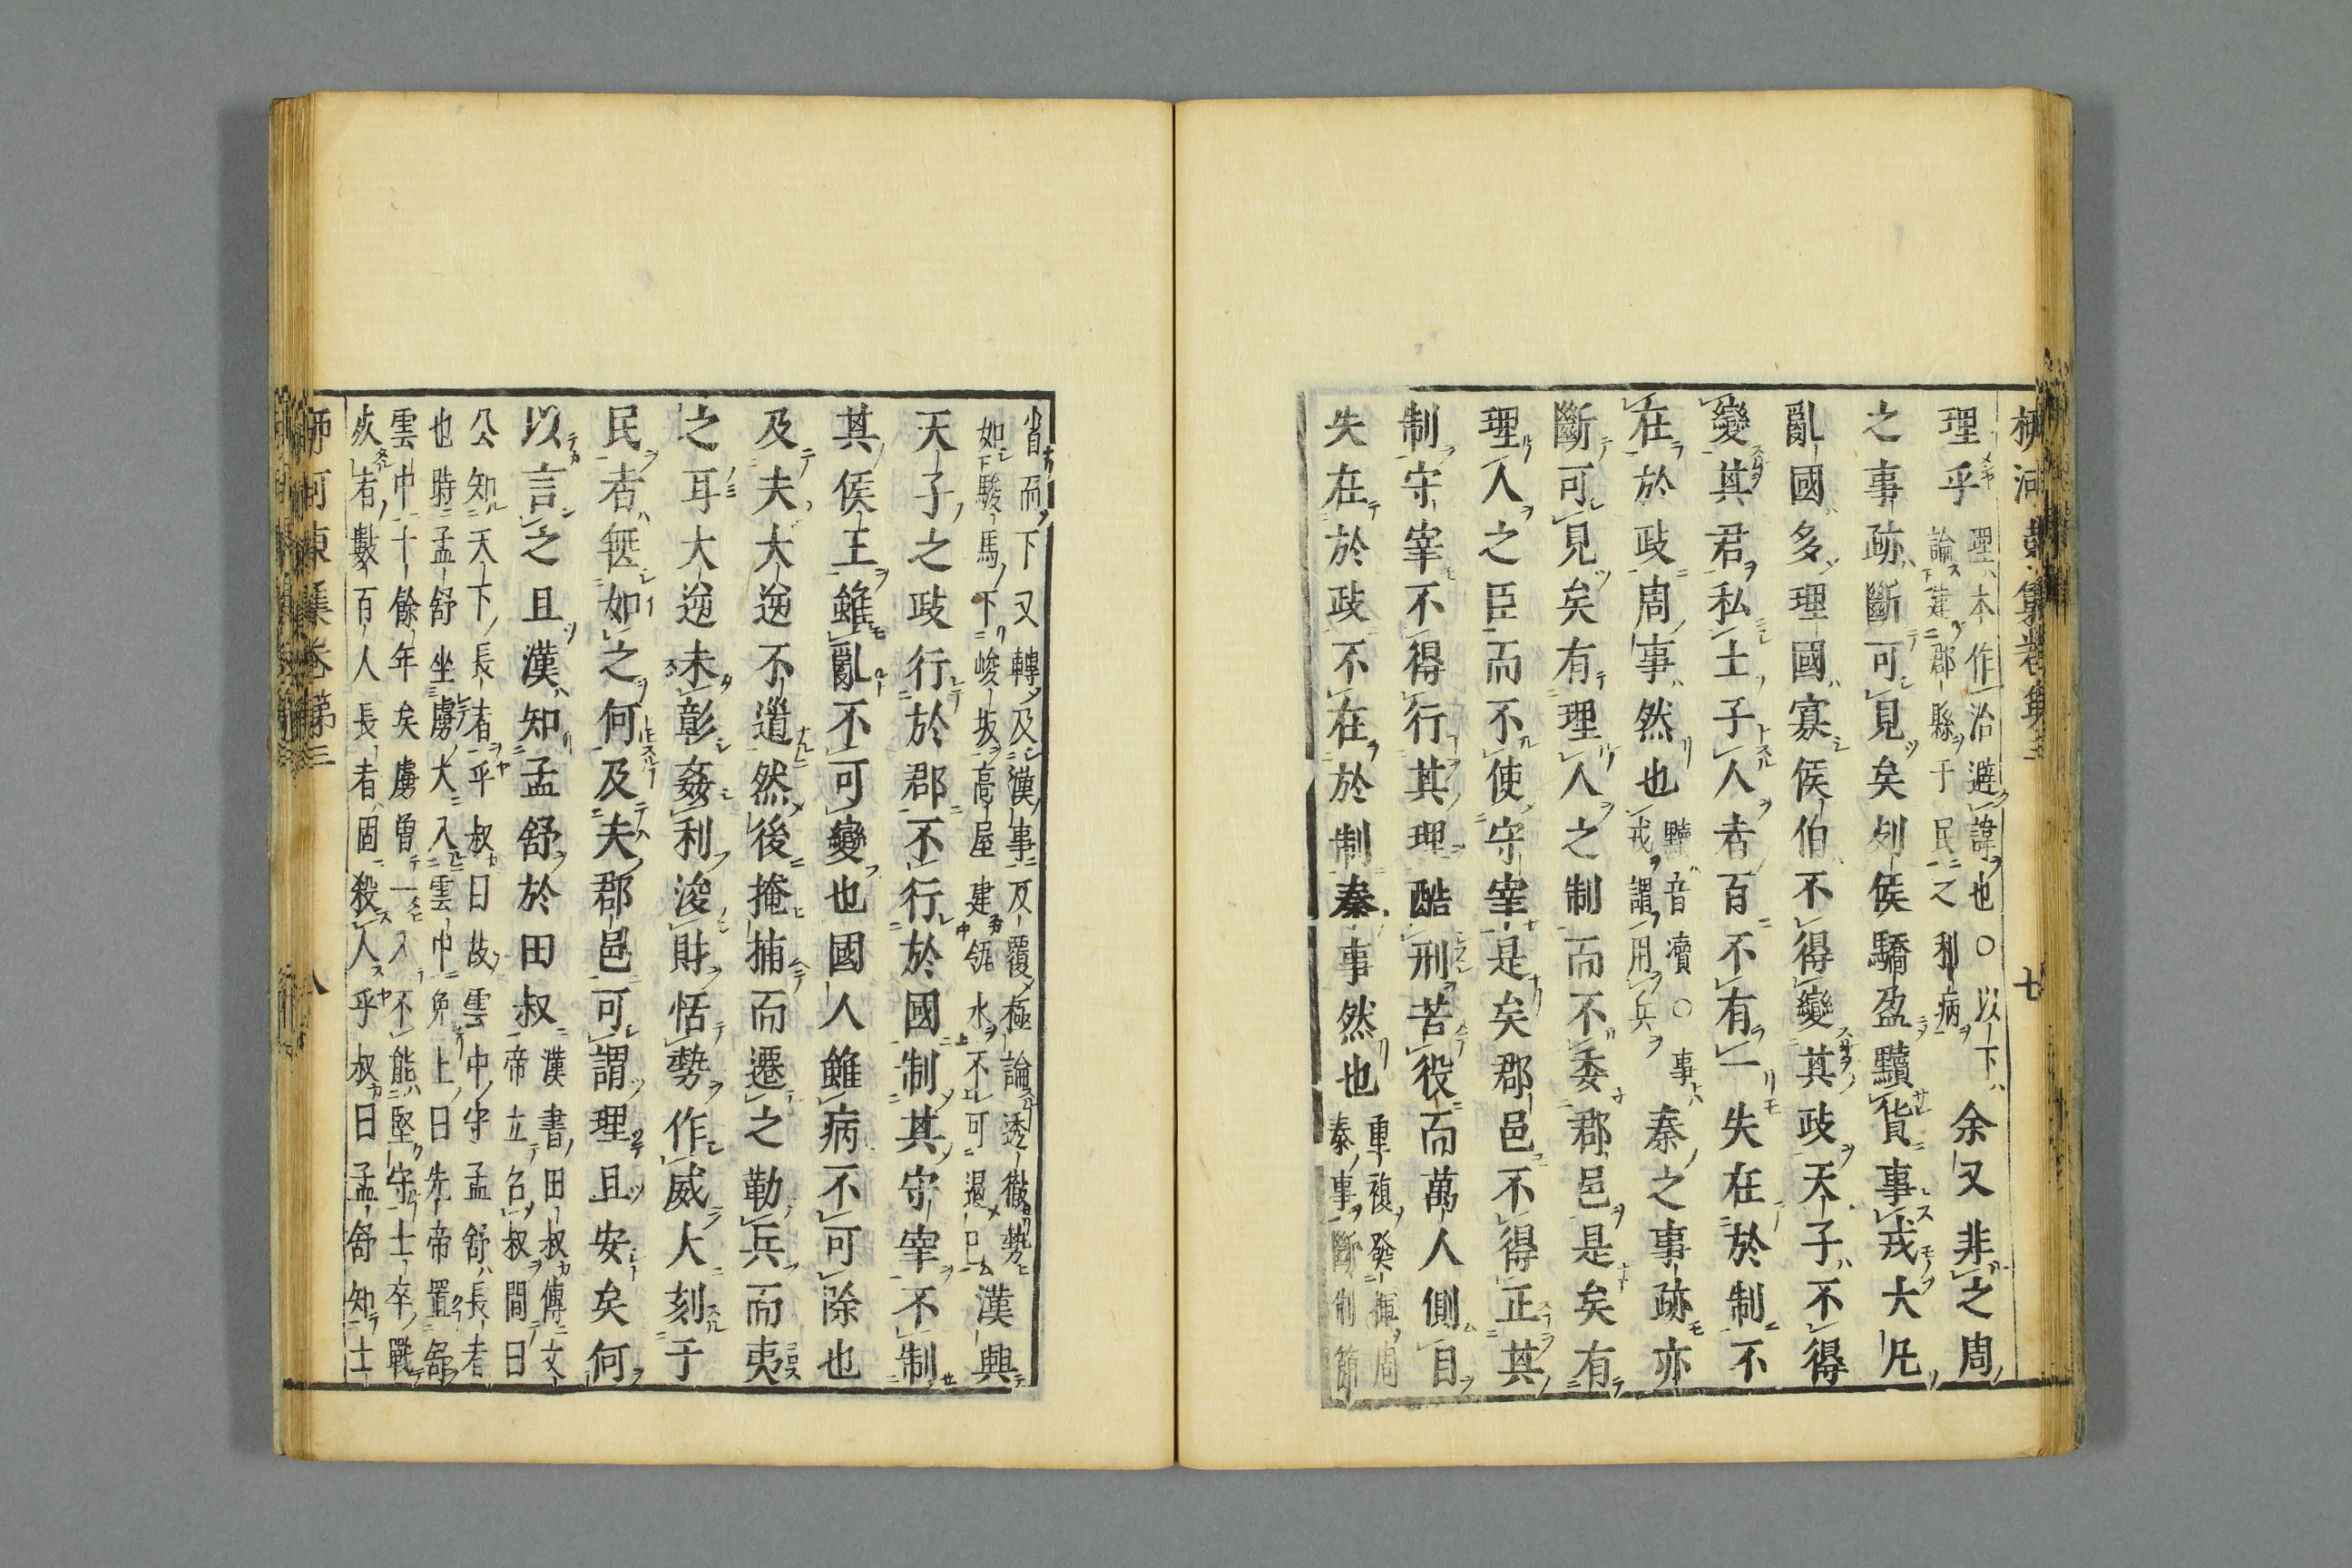 柳河東集卷第三
七
理乎理本作治避諱也○以下
論建郡縣于民之利病余又非之周
之事跡斷可見矣列侯驕盈黷貨事戎大凡
亂國多理國寡侯伯不得變其政天子不得
變其君私土子人者百不有一失在於制不
在於政周事然也黷音瀆○事
戎謂用兵秦之事跡亦
斷可見矣有理人之制而不委郡邑是矣有
理人之臣而不使守宰是矣郡邑不得正其
制守宰不得行其理酷刑苦役而萬人側目
失在於政不在於制秦事然也重複發揮周
秦事斷制節
省而下又轉及漢事反覆極論透徹勢
如駿馬下峻坂高屋建瓴水不可遏已漢興
天子之政行於郡不行於國制其守宰不制
其侯王雖亂不可變也國人雖病不可除也
及夫大逆不道然後掩捕而遷之勒兵而夷
之耳大逆未彰姦利浚財恬勢作威大刻于
民者無如之何及夫郡邑可謂理且安矣何
以言之且漢知孟舒於田叔漢書田叔傳文
帝立召叔問曰
公知天下長者乎叔曰故雲中守孟舒長者
也時孟舒坐虜大入雲中免上曰先帝置舒
雲中十餘年矣虜曾一入不能堅守士卒戰
死者數百人長者固殺人乎叔曰孟舒知士
柳河東集卷第三
八